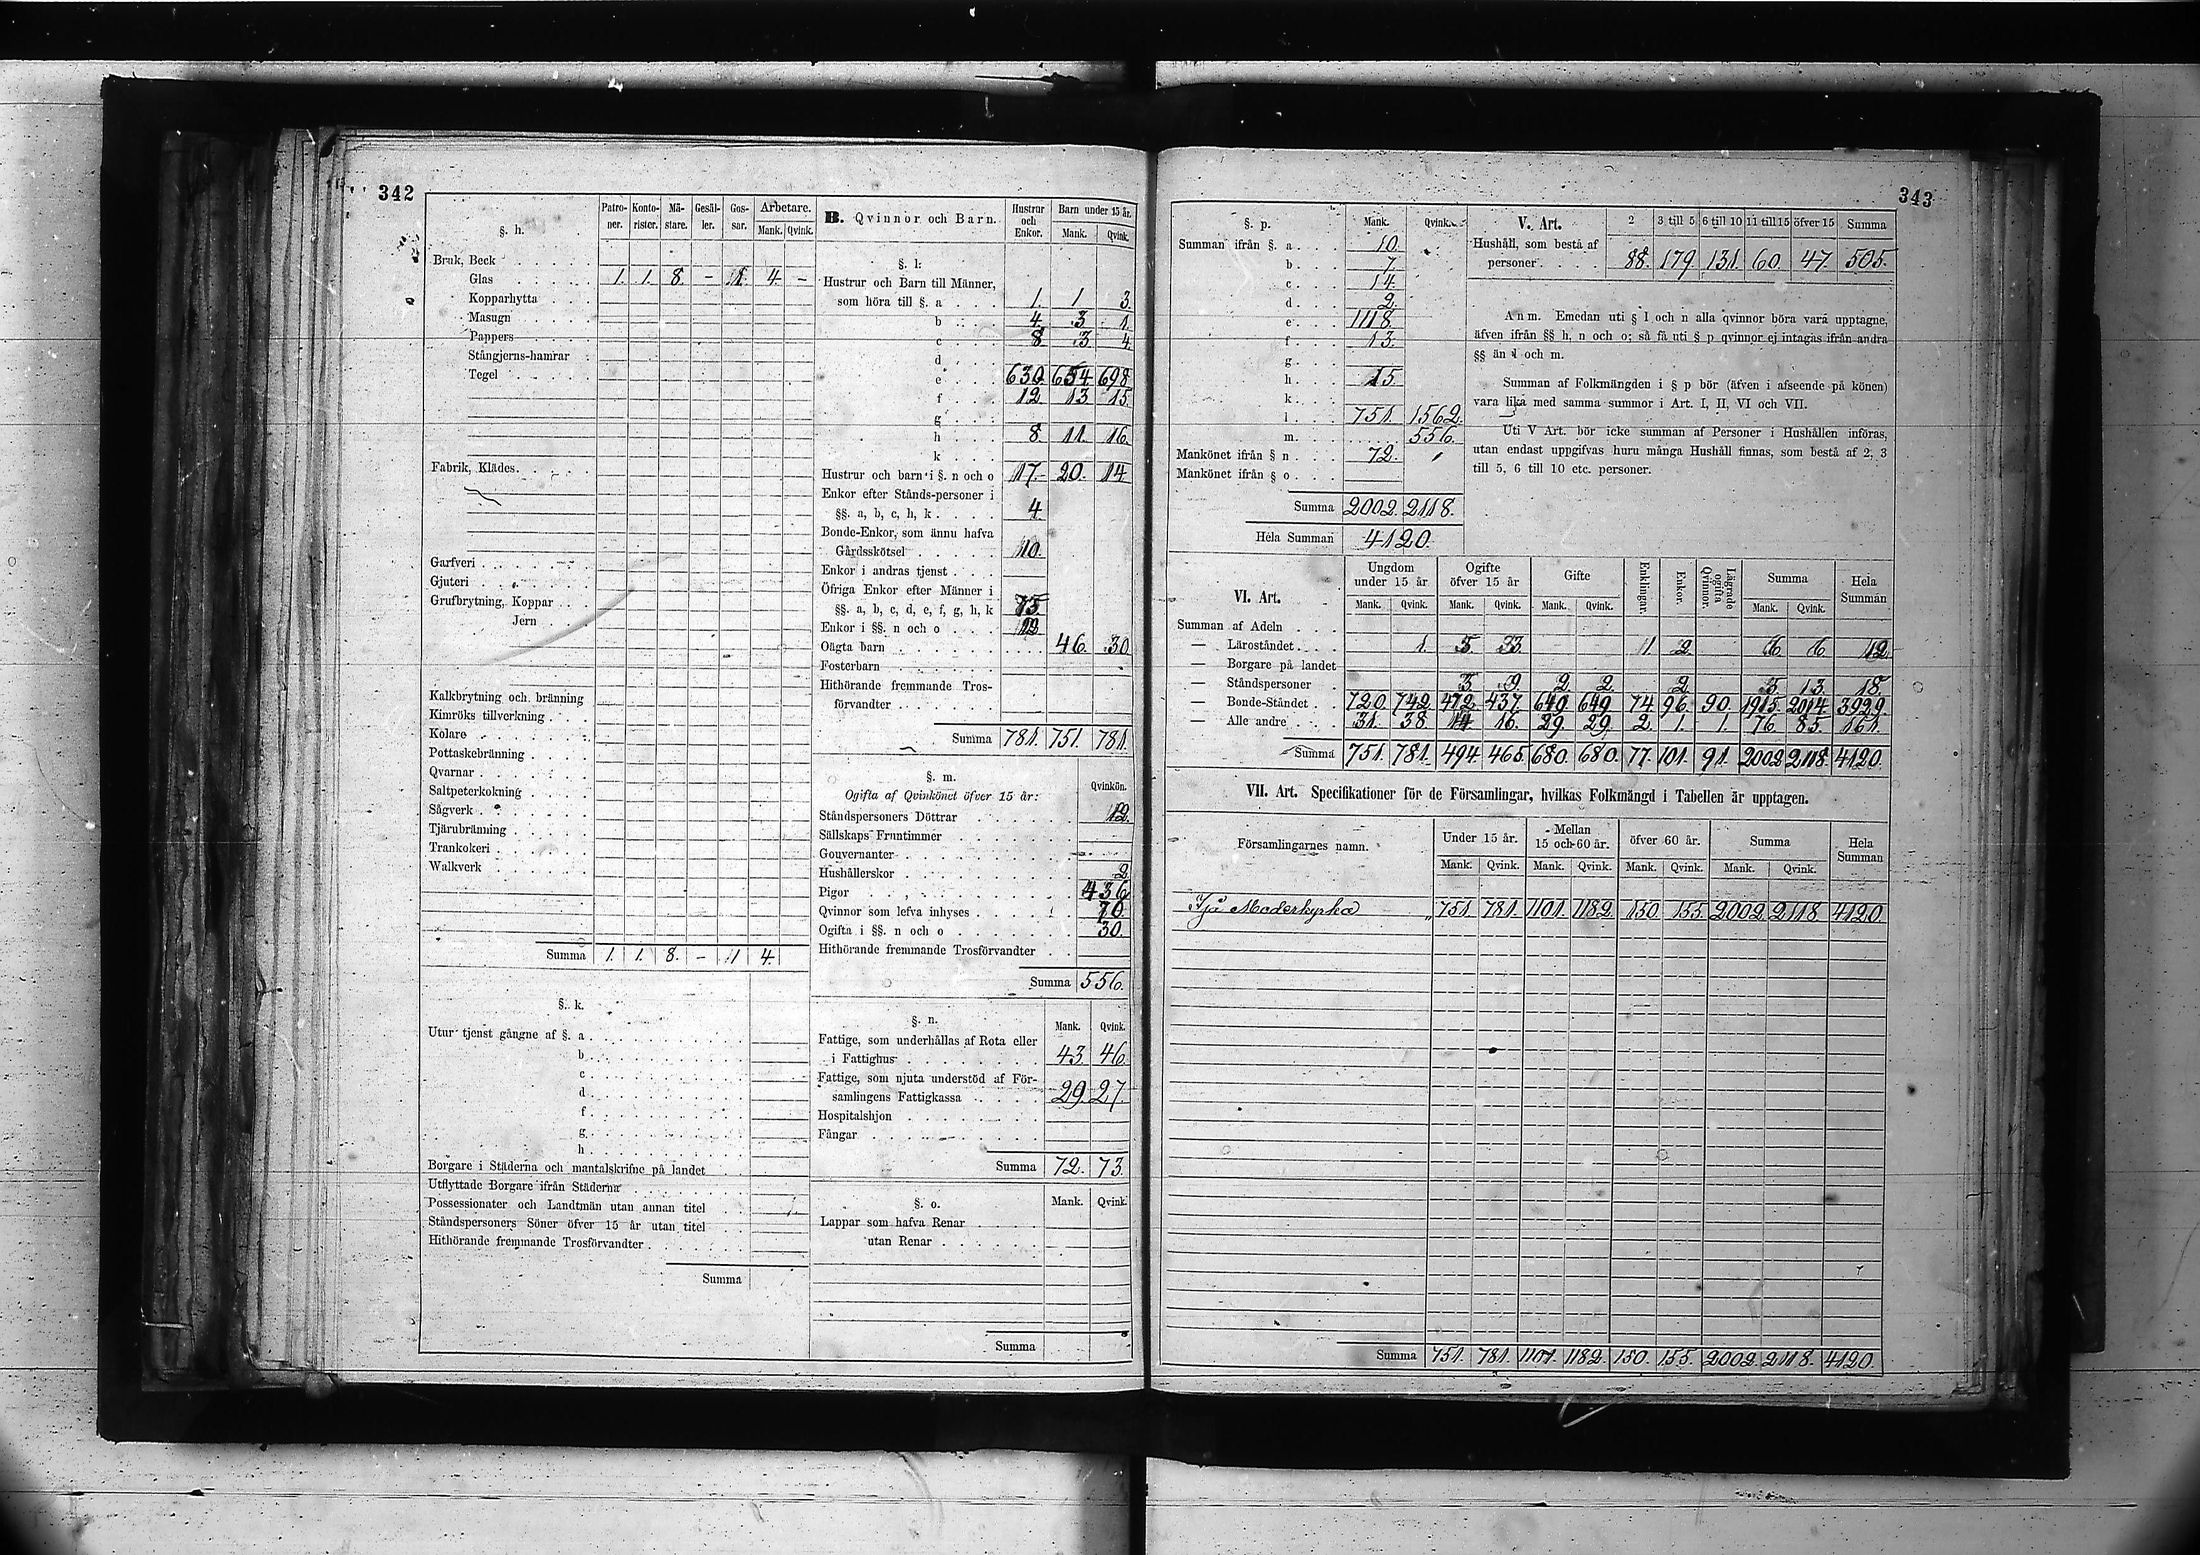 342
§. h. Patro-ner. Konto-rister. Mä-stare. Gesäl-ler. Gos-sar. Arbetare. Mank. Qvink.
Bruk, Beck
Glas 1. 1. 8. – 1. 4. –
Kopparhytta
Masugn
Pappers
Stångjerns-hamrar
Tegel
Fabrik, Klädes
Garfveri
Gjuteri
Grufbrytning, Koppar
Jern
Kalkbrytning och bränning
Kimröks tillverkning
Kolare
Pottaskebränning
Qvarnar
Saltpeterkokning
Sågverk
Tjärubränning
Trankokeri
Walkverk
Summa 1. 1. 8. – 1 4.
§. k.
Utur tjenst gångne af §. a
b
c
d
f
g
h
Borgare i Städerna och mantalskrifne på landet
Utflyttade Borgare ifrån Städerna
Possessionater och Landtmän utan annan titel
Ståndspersoners Söner öfver 15 år utan titel
Hithörande fremmande Trosförvandter
Summa
B. Qvinnor och Barn. Hustrur och Enkor. Barn under 15 år. Mank. Qvink.
§. l:
Hustrur och Barn till Männer,
som höra till §. a 1. 1 3.
b 4. 3 1.
c 8. 3 4.
d
e 630 654 698
f 12. 13. 15.
g
h 8. 11. 16.
k
Hustrur och barn i §. n och o 17. 20. 14.
Enkor efter Stånds-personer i
§§. a, b, c, h, k 4.
Bonde-Enkor, som ännu hafva
Gårdsskötsel 10.
Enkor i andras tjenst
Öfriga Enkor efter Männer i
§§. a, b, c, d, e, f, g, h, k 75
Enkor i §§. n och o 12
Oägta barn 46. 30
Fosterbarn
Hithörande fremmande Tros-
förvandter
Summa 781. 751. 781.
§. m.
Ogifta af Qvinkönet öfver 15 år: Qvinkön.
Ståndspersoners Döttrar 12.
Sällskaps Fruntimmer
Gouvernanter
Hushållerskor 2
Pigor 436
Qvinnor som lefva inhyses 70.
Ogifta i §§. n och o 30.
Hithörande fremmande Trosförvandter
Summa 556.
§. n. Mank. Qvink.
Fattige, som underhållas af Rota eller
i Fattighus 43. 46.
Fattige, som njuta understöd af För-
samlingens Fattigkassa 29. 27.
Hospitalshjon
Fångar
Summa 72. 73.
§. o. Mank. Qvink.
Lappar som hafva Renar
utan Renar
Summa
343
§. p. Mank. Qvink.
Summan ifrån §. a 10.
b 7.
c 14.
d 2.
e 1118.
f 13.
g
h 15.
k
l 751. 1562.
m 556.
Mankönet ifrån § n 72.
Mankönet ifrån § o
Summa 2002. 2118.
Hela Summan 4120.
V. Art. 2 3 till 5 6 till 10 11 till 15 öfver 15 Summa
Hushåll, som bestå af
personer 88. 179 131. 60. 47. 505.
Anm. Emedan uti § l och n alla qvinnor böra vara upptagne,
äfven ifrån §§ h, n och o; så få uti § p qvinnor ej intagas ifrån andra
§§ än l och m.
Summan af Folkmängden i § p bör (äfven i afseende på könen)
vara lika med samma summor i Art. I, II, VI och VII.
Uti V Art. bör icke summan af Personer i Hushållen införas,
utan endast uppgifvas huru många Hushåll finnas, som bestå af 2, 3
till 5, 6 till 10 etc. personer.
VI. Art. Ungdom under 15 år Ogifte öfver 15 år Gifte Enklingar. Enkor. Lägrade ogifta Qvinnor. Summa Hela Summan
Mank. Qvink. Mank. Qvink. Mank. Qvink. Mank. Qvink.
Summan af Adeln
— Läroståndet 1. 5. 3 1 2 6. 6. 12
— Borgare på landet
— Ståndspersoner 3. 9. 2. 2. 2. 5. 13. 18.
— Bonde-Ståndet 720. 742. 472. 437. 649 649 74 96. 90. 1915 2014 3929.
— Alle andre 31. 38. 14 16. 29. 29. 2. 1. 1. 76. 85. 161.
Summa 751. 781. 494 465 680. 680. 77. 101. 91. 2002 2118. 4120.
VII. Art. Specifikationer för de Församlingar, hvilkas Folkmängd i Tabellen är upptagen.
Församlingarnes namn. Under 15 år. Mellan 15 och 60 år. öfver 60 år. Summa Hela Summan
Mank. Qvink. Mank. Qvink. Mank. Qvink. Mank. Qvink.
Moderkyrka 751. 781. 1101. 1182. 150. 155. 2002. 2118. 4120.
Summa 751. 781. 1101. 1182. 150. 155. 2002. 2118. 4120.